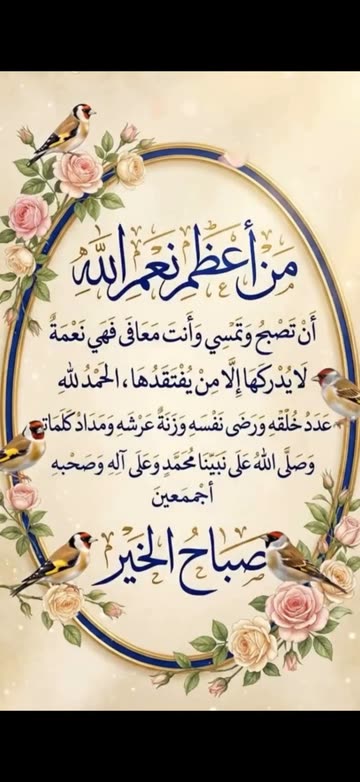 مِنْ أَعْظَمِ نِعَمِ اللَّهِ
أَنْ تُصْبِحُ وَتُمْسِي وَأَنتَ مَعَافَى فَهِيَ نَعْمَةٌ
لَا يُدْرِكَهَا إِلَّا مِنْ يُفْتَقَدُهَا، الحَمْدُ للهِ
عَدَدَ خُلْقِهِ وَرَضَى نَفْسَهِ وَزِنَةُ عَرْشِهِ وَمَدَادُ كَلَمَاتِهِ
وَصَلَّى اللهُ عَلَى نَبِيِّنَا مُحَمَّدٍ وَعَلَى آلِهِ وَصَحْبِهِ
أجْمَعين
صَبَاحُ الخَيْر